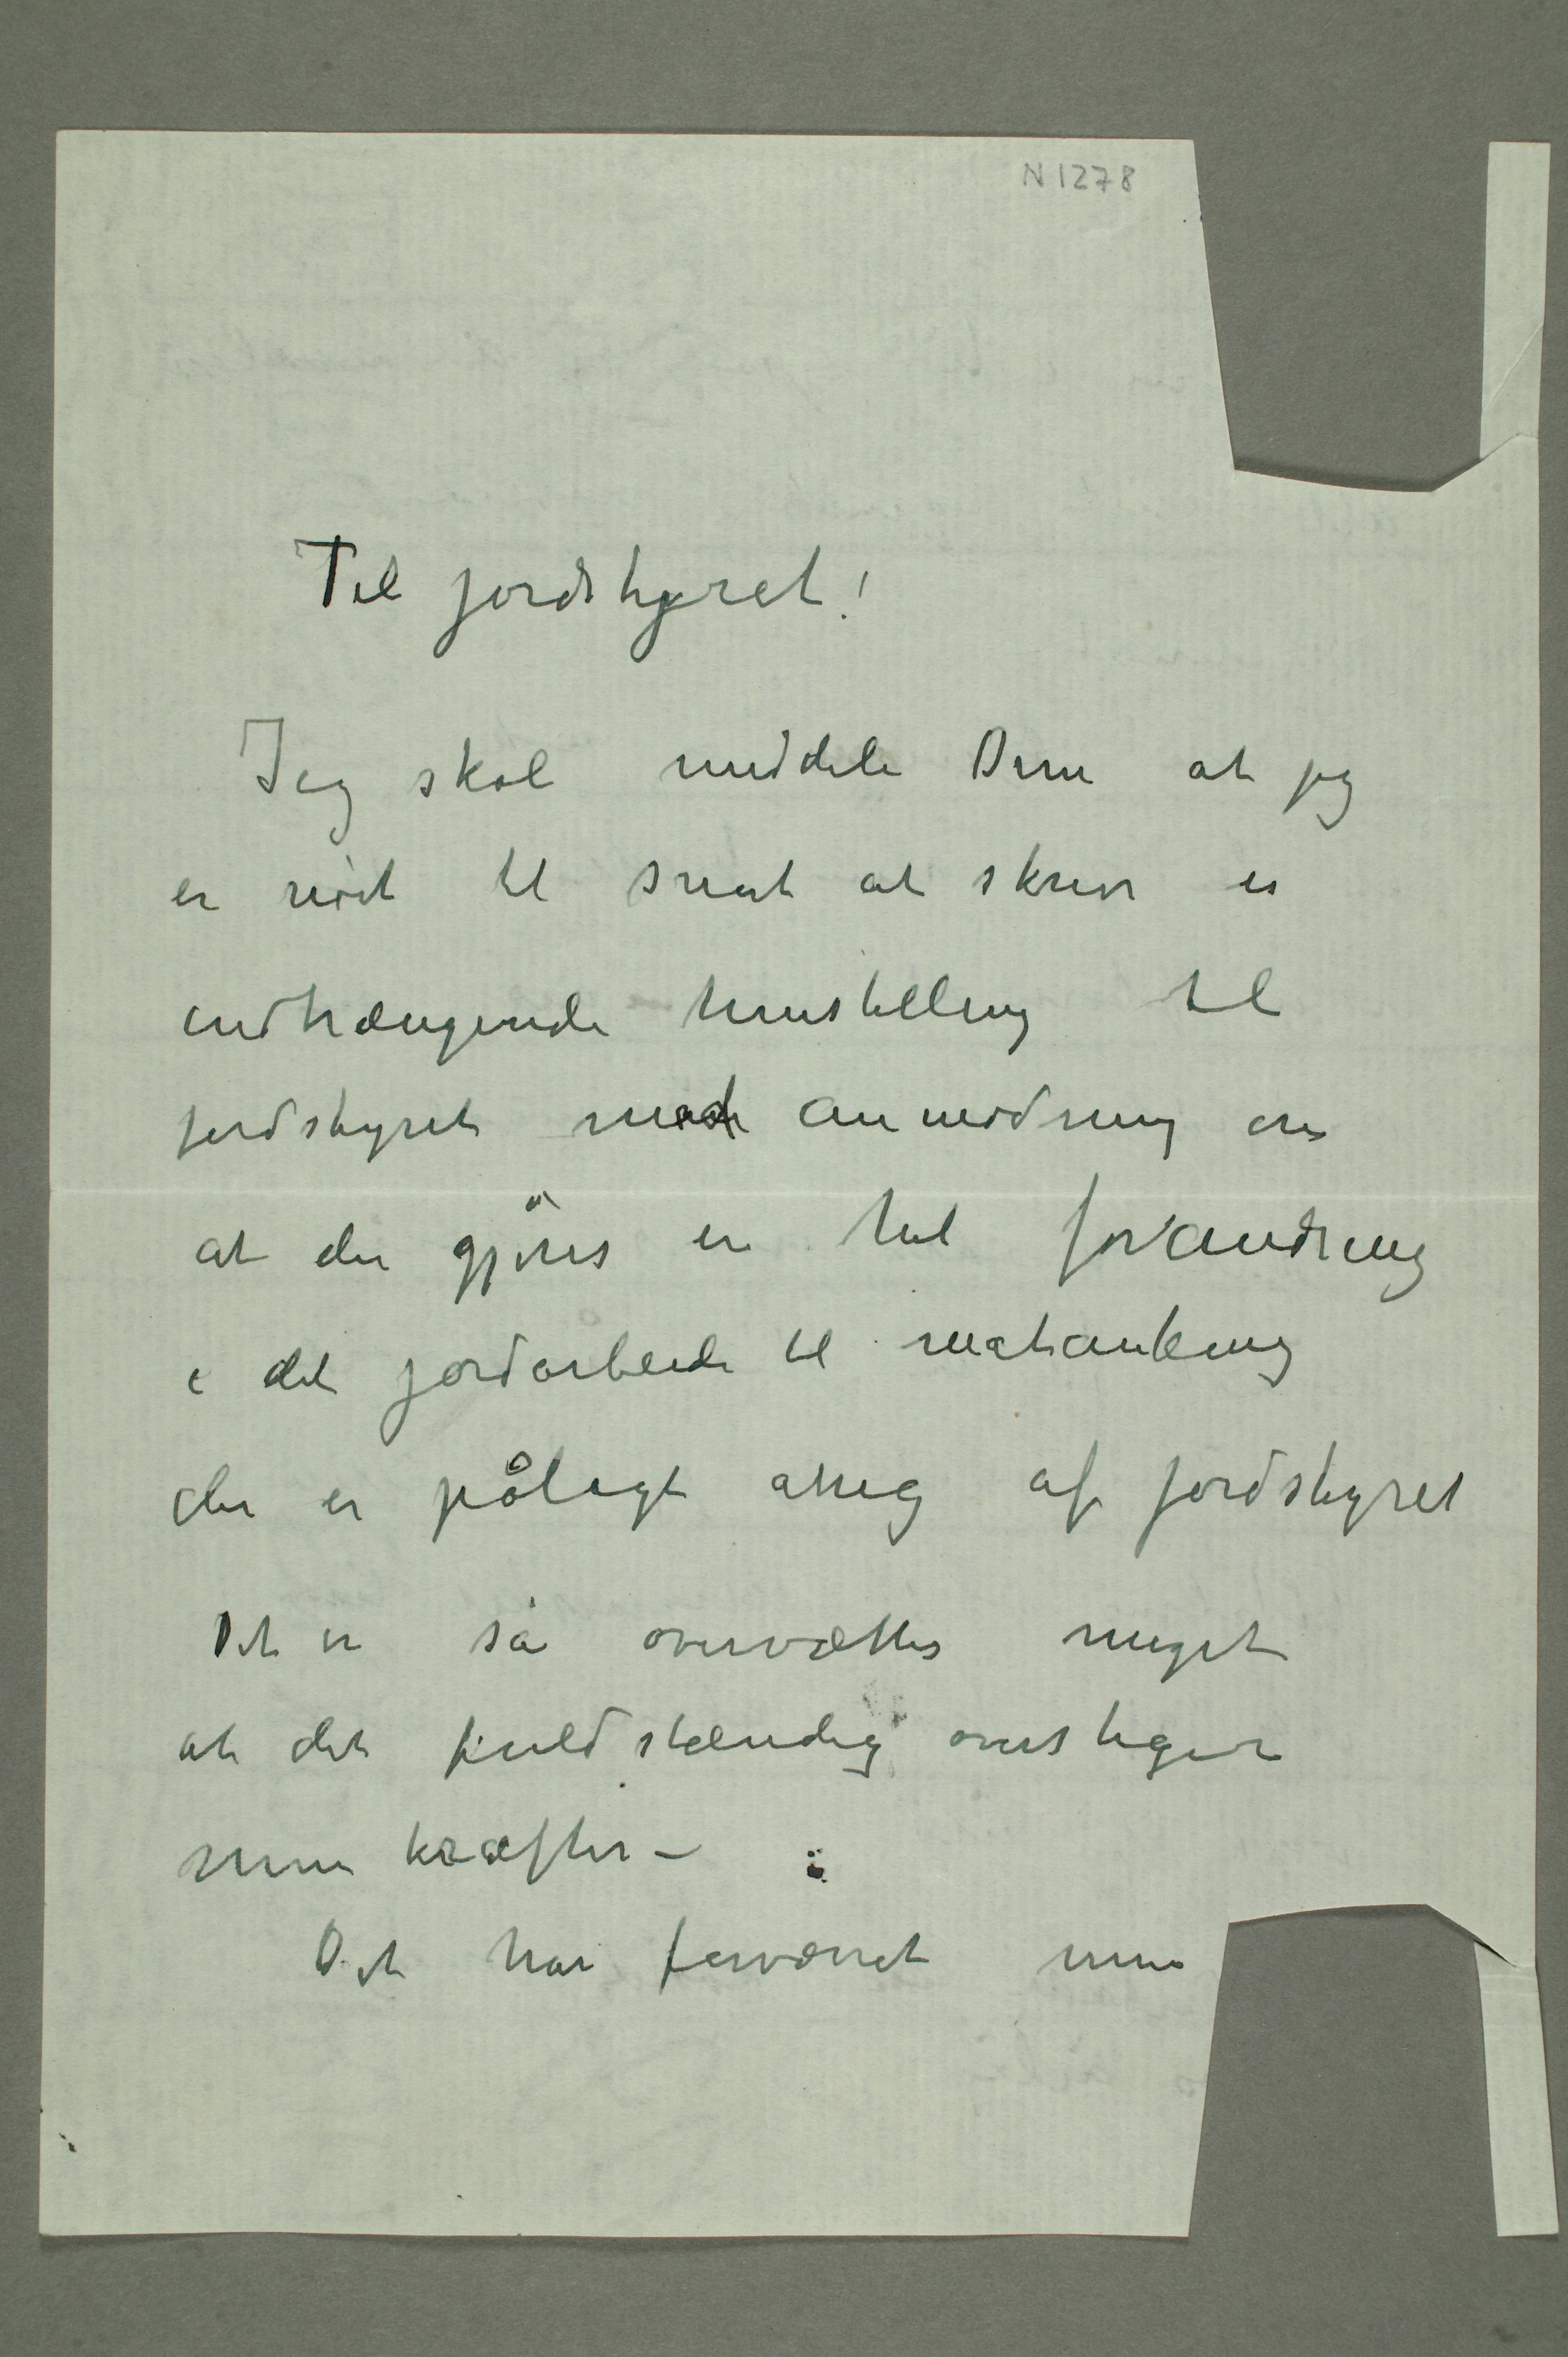 N 1278
Til jordstyret!
Jeg skal meddele Dem at jeg
er nödt til snart at skrive en
indtrængende henstilling til
jordstyret med anmodning om
at der gjöres en hel forandring
i det jordarbeide til matauking
der er pålagt mig af jordstyret
Det er så overvættes meget
at det fuldstændig overstiger
mine kræfter –
Det har forværret min